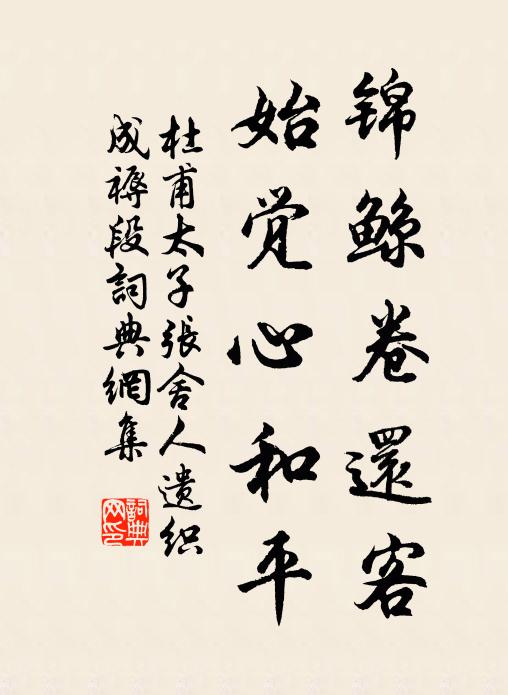 锦鲸卷還客
始觉心和平
杜甫太子張舍人遗织
成褥段詞典網集
詞典
网印